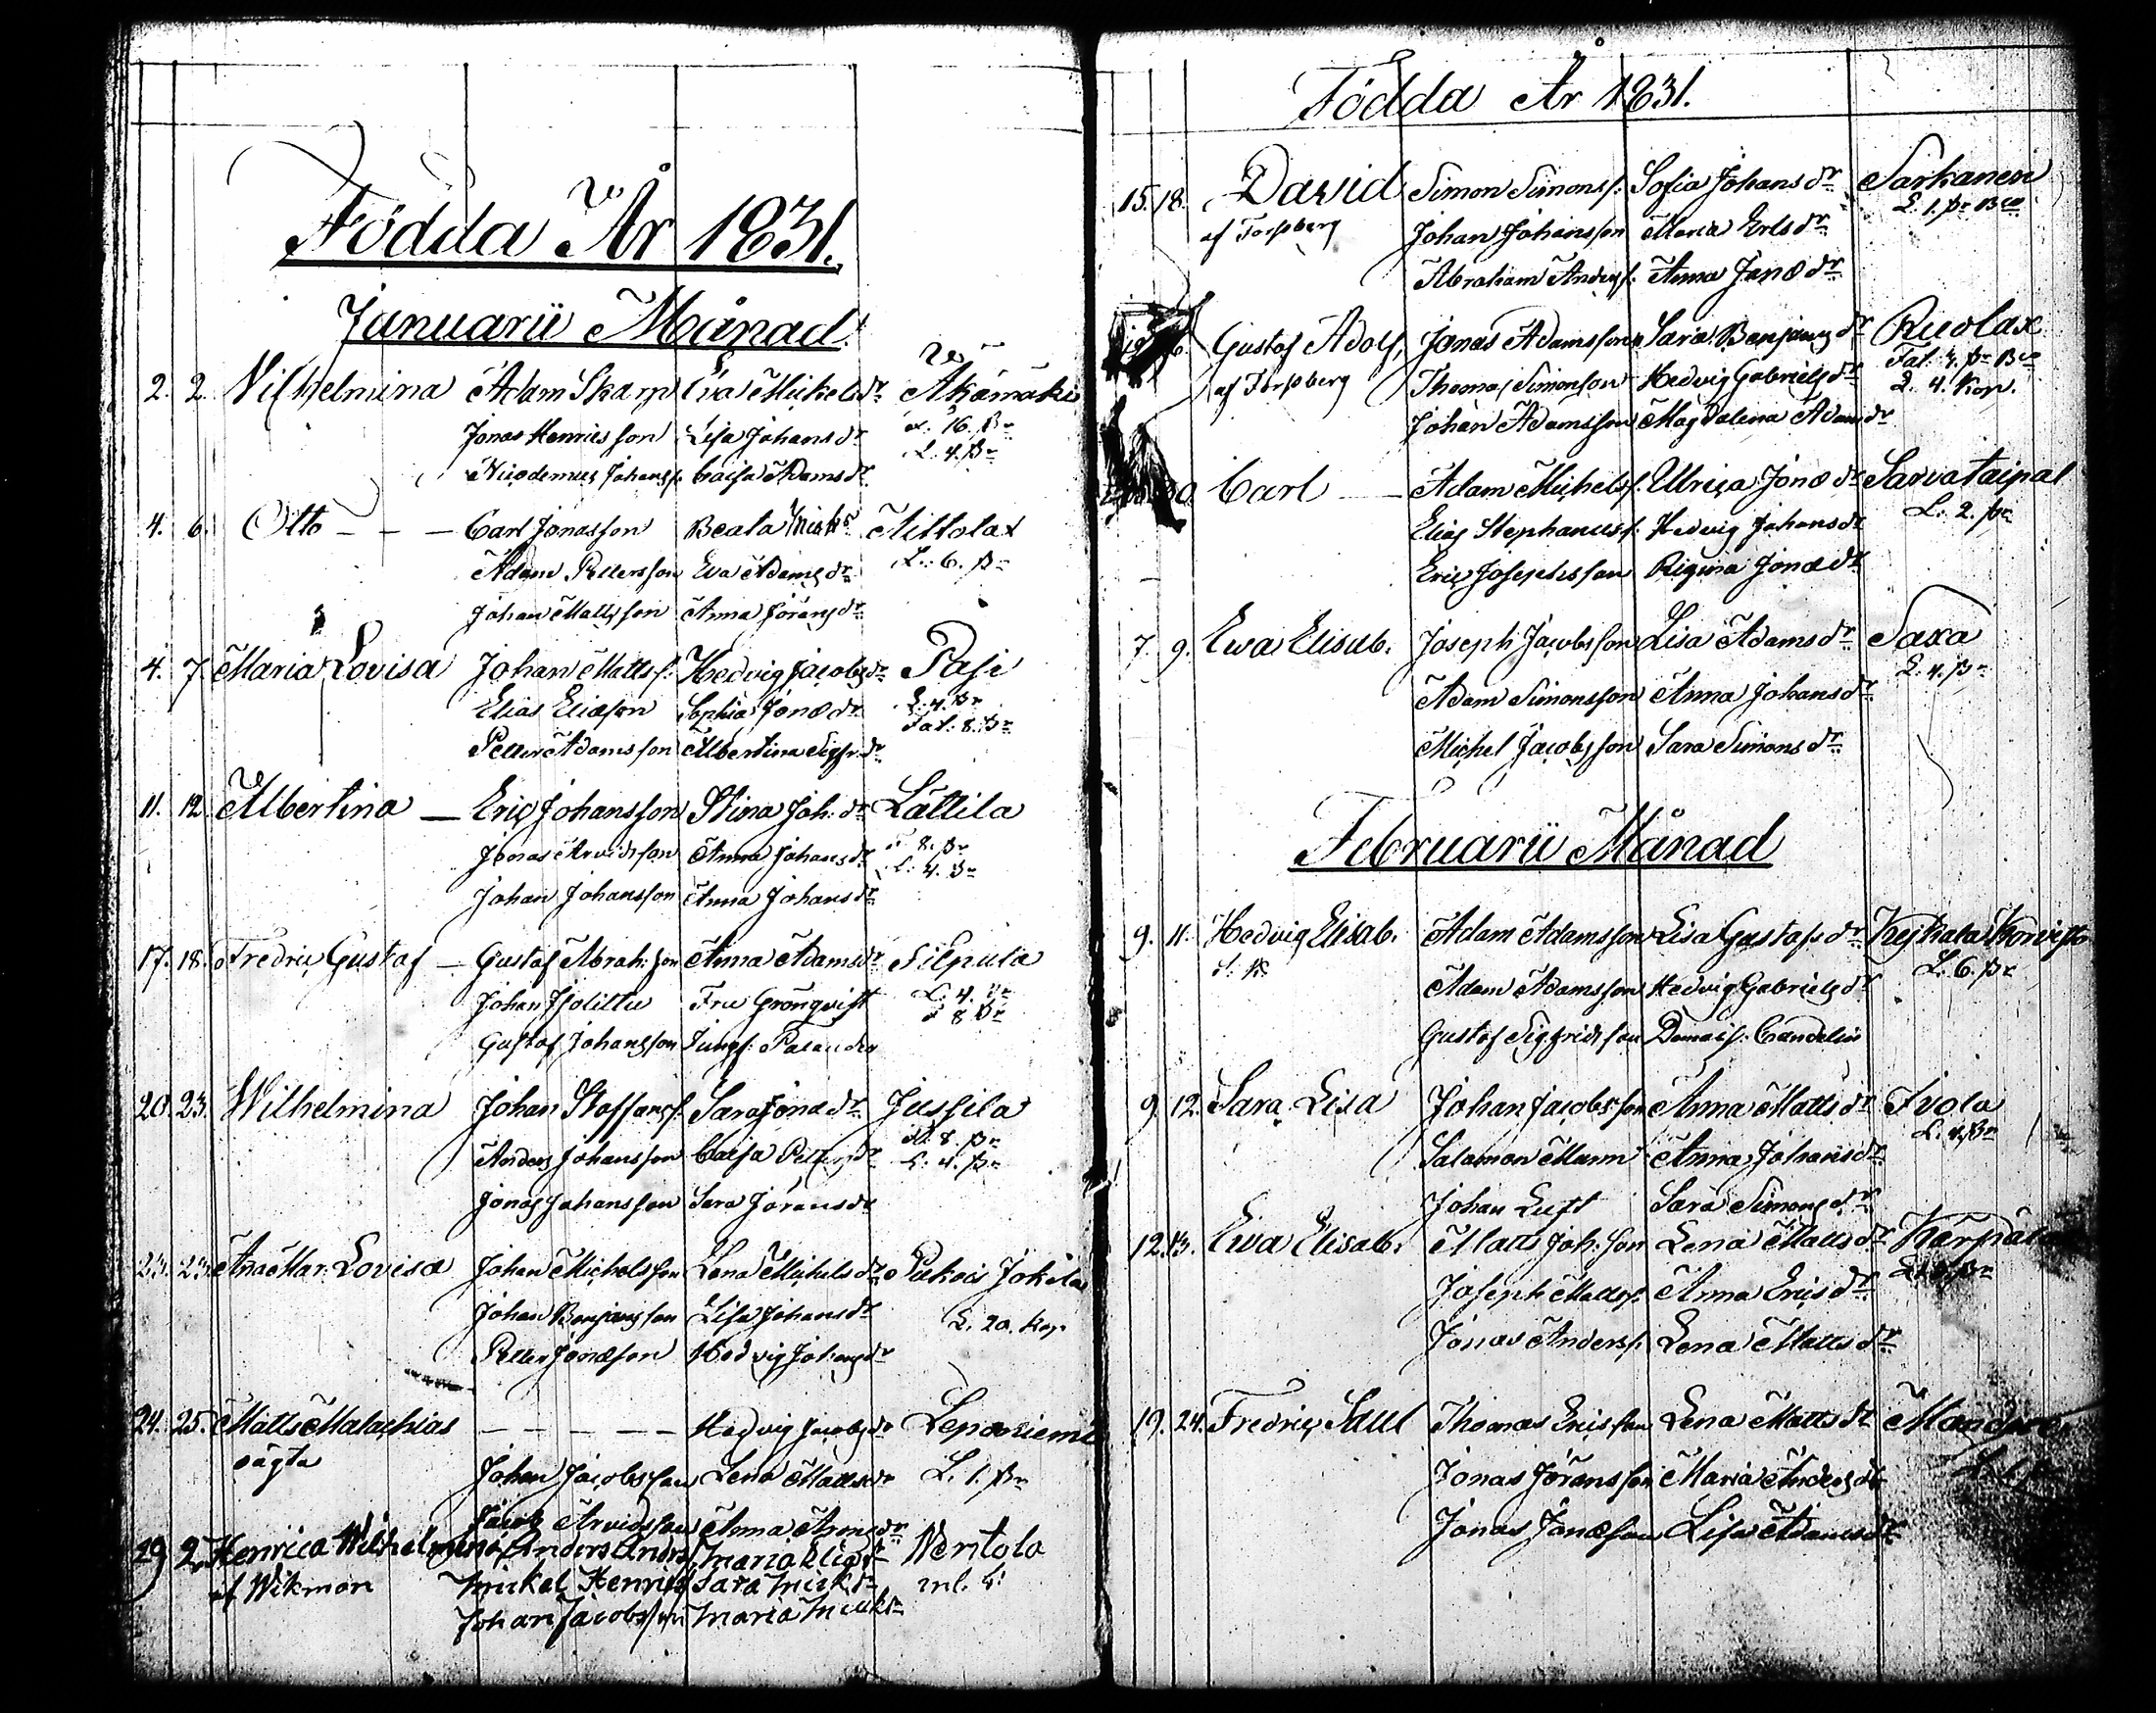 Födda År 1831.
Januarii Månad
2. 2. Vilhelmina Adam Skarp Eva Mickelsdr Äkämäki
Jonas Henricsson Lisa Johansdr 16.
Nicodemus Johanss. Caisa Adamsdr L. 4.
4. 6. Otto - - - Carl Jonasson Beata Mickdr
Adam Pettersson Eva Adamsdr L. 6.
Johan Mattsson Anna Göransdr
4. 7. Maria Lovisa Johan Mattss. Hedvig Jacobsdr Pasi
Elias Eliæson Sophia Jonædr L. 4.
Petter Adamsson Albertina Sigfr.dr Fat. 8.
11. 12. Albertina — Eric Johansson Stina Joh.dr Lättilä
Jonas Arvidsson Anna Johansdr 8.
Johan Johansson Anna Johansdr L. 4.
17. 18. Fredric Gustaf — Gustaf Abrah.son Anna Adamsdr Silpula
Johan Fru Grönqvist L. 4.
Gustaf Johansson Jungf. 8
20. 23. Wilhelmina Johan Staffanss. Sara Jonædr Jussila
Anders Johansson Caisa Pettersdr 8.
Jonas Johansson Sara Göransdr L. 4.
23. 23. Ana Mar. Lovisa Johan Michelsson Lena Michelsdr Jokila
Johan Benjamsson Lisa Johansdr L. 20. Kop
Petter Jonæson Hedvig Johansdr
24. 25. Matts Malachias - - - - - Hedvig Jacobsdr Leponiemi
oägta Johan Jacobsson Lena Mattsdr L. 1.
Jacob Arvidsson Anna
29 2 Henrica Wilhelmina Anders Anders. Maria Eliædr Wentola
af Wikman Mickel Henrics. Sara Mickdr
Johan Jacobsson Maria Mickdr
Födda År 1831.
15. 18. David Simon Simonss. Sofia Johansdr Sarkanen
af Forssberg Johan Johansson Maria Ericsdr L. 1.
Abraham Anderss. Anna Jonædr
Gustaf Adolf, Jonas Adamsson Sara Benjamsdr Ruolax
af Forssberg Thomas Simonsson Hedvig Gabrielsdr Fat.
Johan Adamsson Magdalena Adamsdr 4. Kop.
Carl — Adam Michelss. Ulrica Jonædr Sarvataipal
Elias Stephanuss. Hedvig Johansdr L. 2.
Eric Josephsson Regina Jonædr
7. 9. Ewa Elisab. Joseph Jacobsson Lisa Adamsdr Saxa
Adam Simonsson Anna Johansdr L. 4.
Michel Jacobsson Sara Simonsdr
Februarii Månad
9. 11. Hedvig Elisab. Adam Adamsson Lisa Gustafsdr
Adam Adamsson Hedvig Gabrielsdr L. 6.
Gustaf Sigfridsson Candelin
9. 12. Sara Lisa Johan Jacobsson Anna Mattsdr
Salamon Mann Anna Johansdr L. 4.
Johan Luft Sara Simonsdr
12. 13. Ewa Elisab. Matts Joh.son Lena Mattsdr
Joseph Mattss. Anna Ericsdr
Jonas Anderss. Lena Mattsdr
19. 24. Fredric Saul Thomas Ericsson Lena Mattsdr
Jonas Göransson Maria Andersdr
Jonas Jonæson Lisa Adamsdr